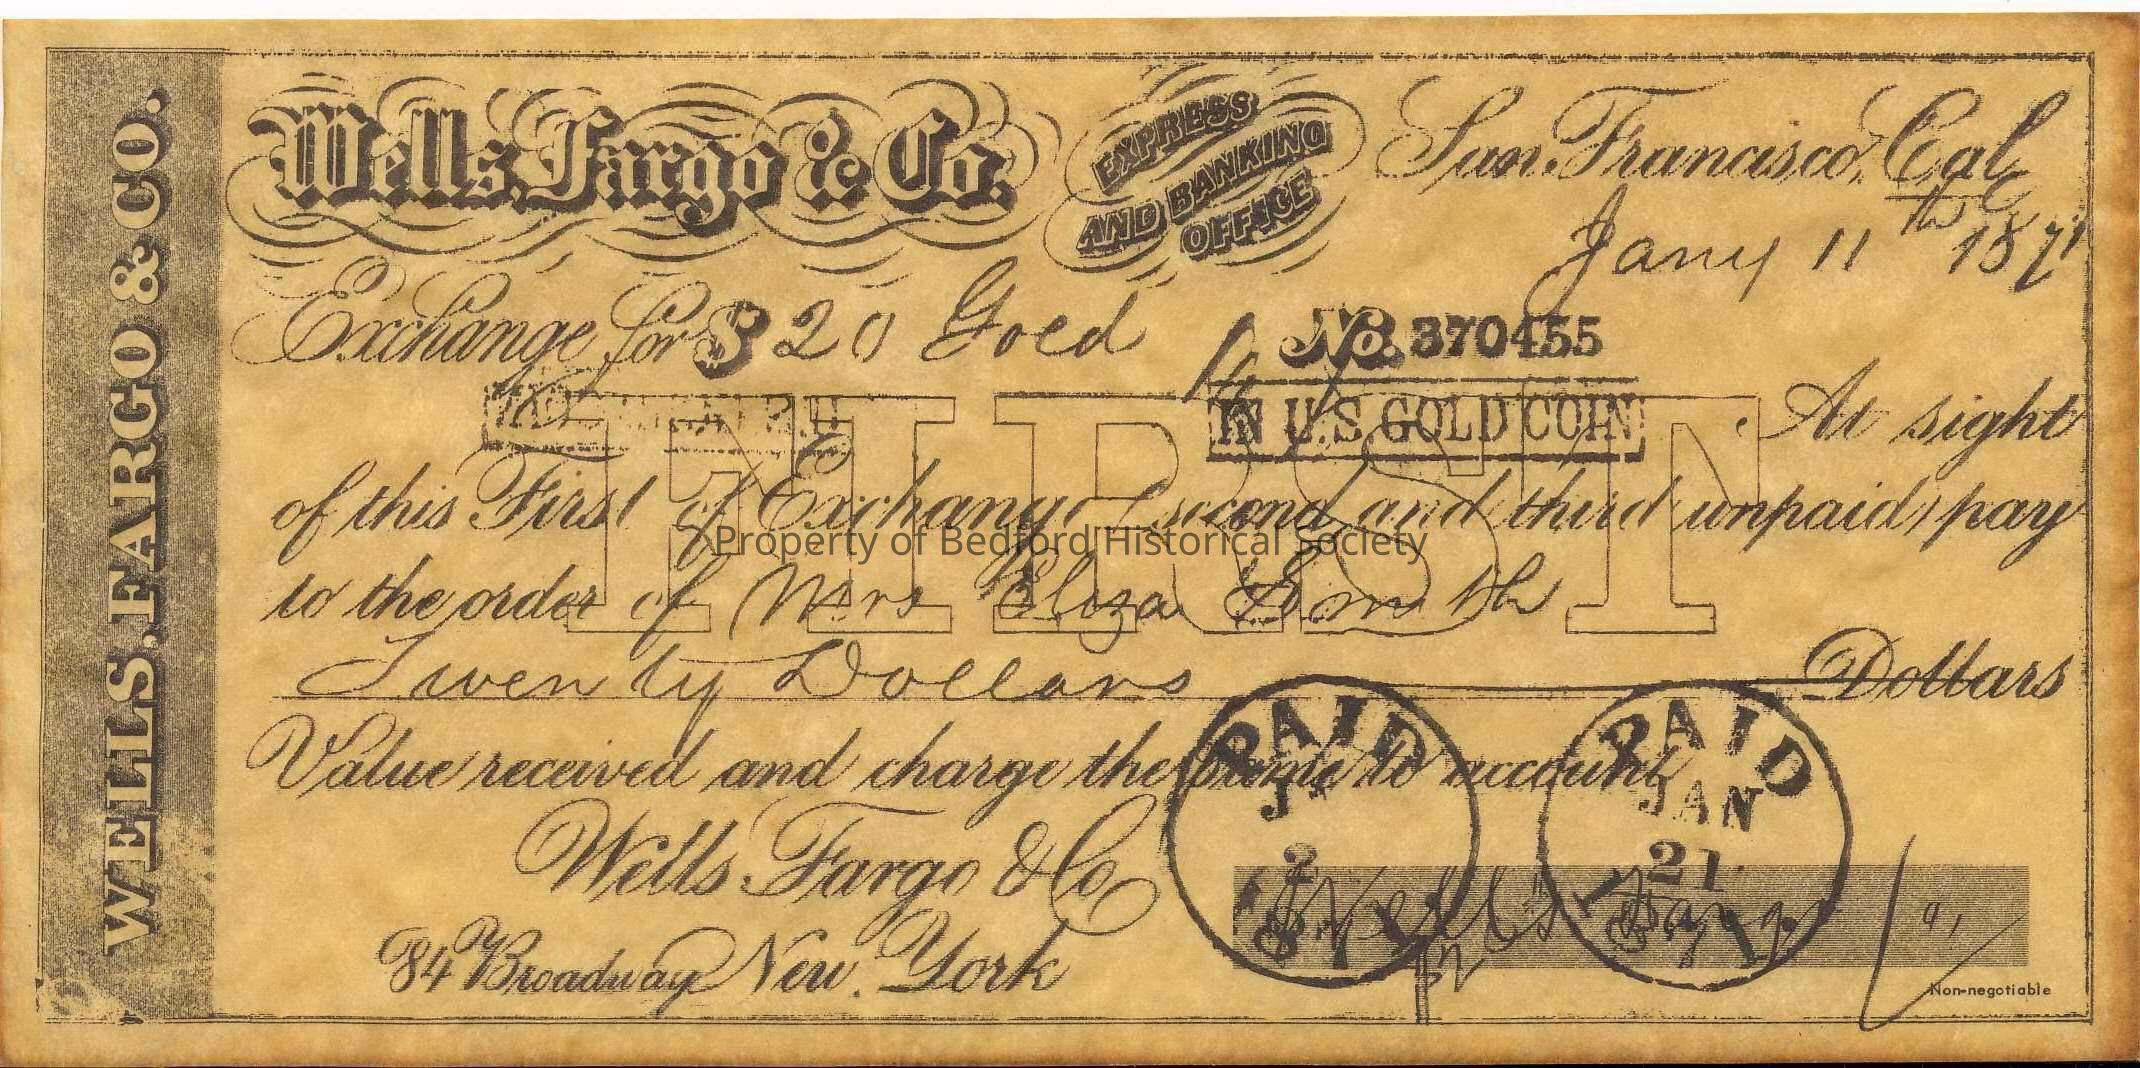 WELLS, FARGO & CO.
Wells, Fargo & Co.
EXPRESS
AND BANKING
OFFICE
San Francisco, Cal
Jany 11th 1871
Exchange for $ 20 Gold
No. 370455
IN U.S. GOLD COIN
FIRST
At sight
of this First of Exchange (second and third unpaid) pay
Property of Bedford Historical Society
to the order of Mrs Eliza Smith
Twenty Dollars
Dollars
Value received and charge the same to account
Wells, Fargo & Co
84 Broadway New. York
PAID
PAID
JAN
21
Wells Fargo
Non-negotiable